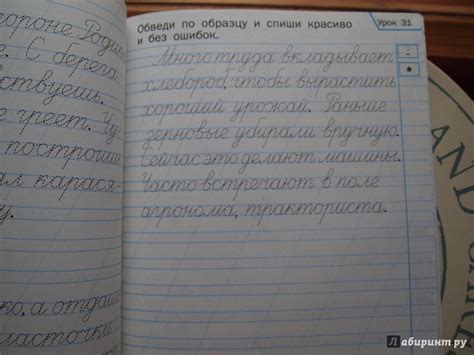 ороне Роди
е. С берега
ствуешь.
е греет. Чу
построили
ал карася-
у.
ко, а отда
ласточки
Обведи по образцу и спиши красиво
и без ошибок.
Урок 31
Много труда вкладывает
хлебороб, чтобы вырастить
хороший урожай. Раньше
зерновые убирали вручную.
Сейчас это делают машины.
Часто встречают в поле
агронома, тракториста.
AND
Лабиринт.ру